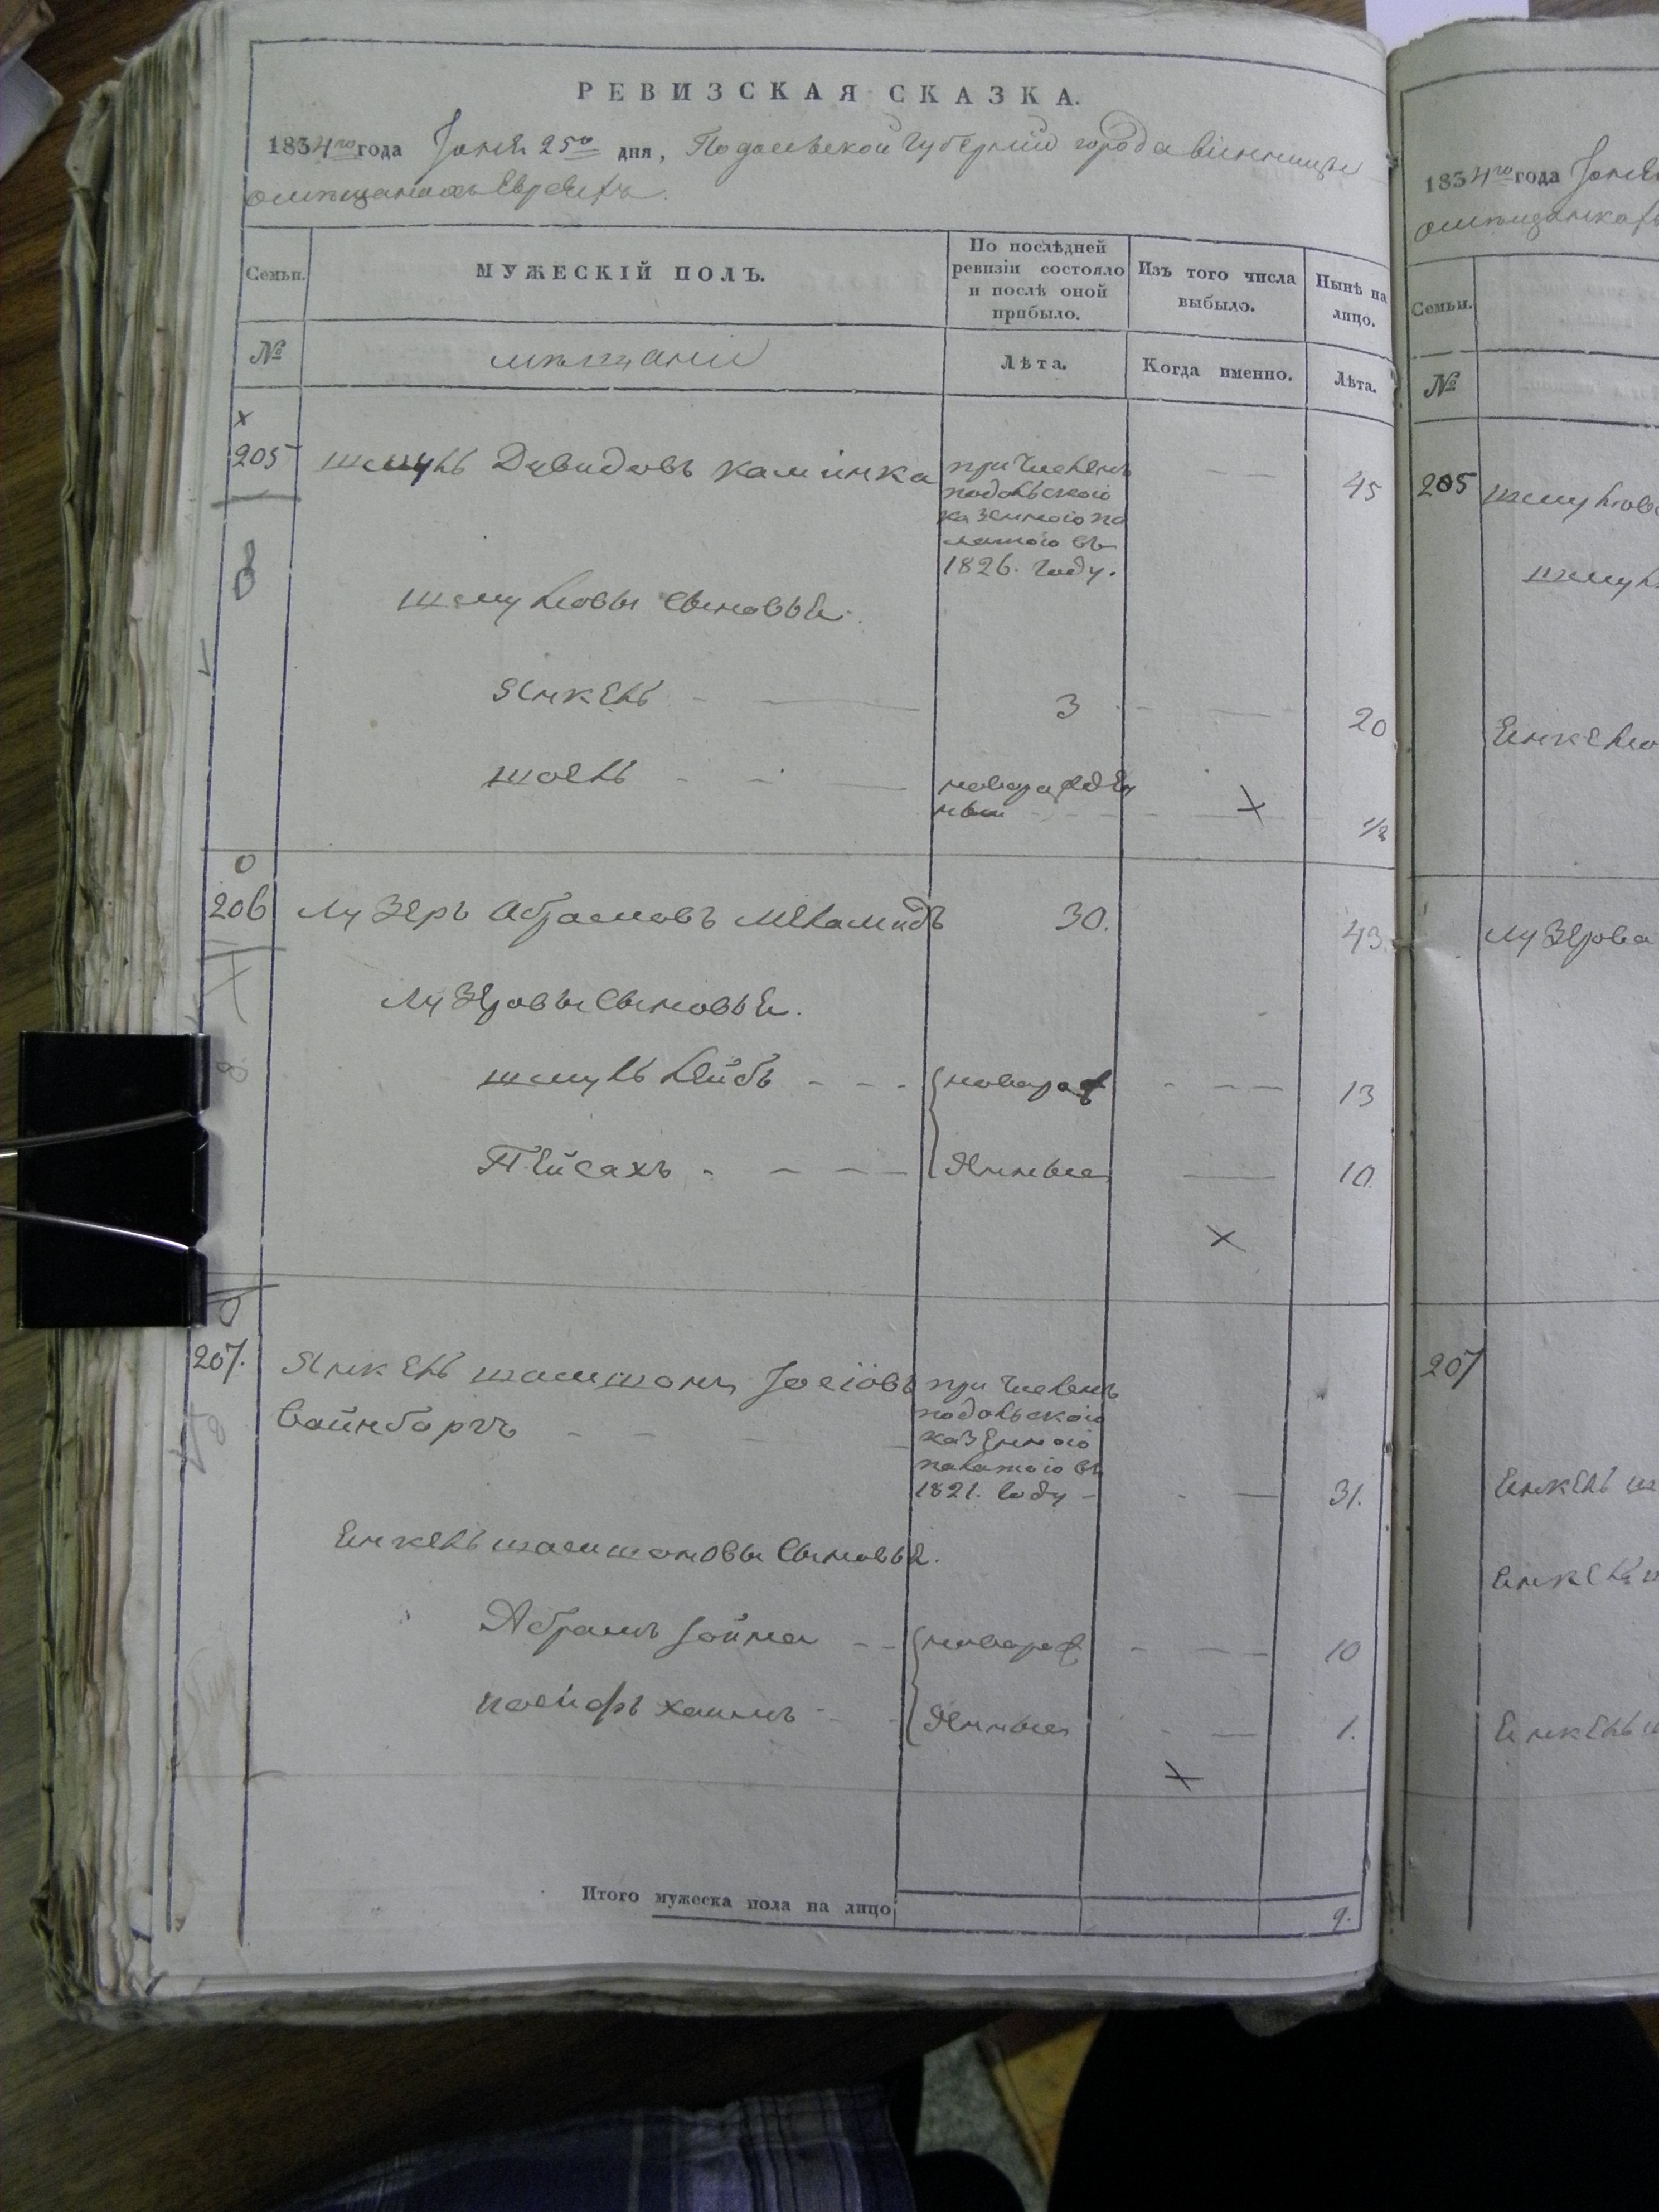 РЕВИЗСКАЯ СКАЗКА.
1834го года Іюня 25го дня, Подольской Губерніи города Винницы
о мѣщанахъ Евреяхъ.
Семьи. МУЖЕСКІЙ ПОЛЪ. По послѣдней ревизіи состояло и послѣ оной прибыло. Изъ того числа выбыло. Нынѣ на лицо.
№ мѣщани Лѣта. Когда именно. Лѣта.
205 Шмуль Давидовъ Камінка причислен 45
подольского
казенного па
латого въ
1826. году.
Шмулювы Сыновья.
Янкель 3 20
Шоель новорожден
ный 1/2
206 Лузеръ Абрамовъ Меламидъ 30. 43.
Лузеровы Сыновья.
Шмуль Лейбъ новорож 13
Пейсахъ денные 10.
207. Янкель Шашмонъ Іосіовъ причислен
Вайнборгъ подольского
казенного
палатого въ
1821. году 31.
Енкель Шашмоновы Сыновья.
Абрамъ Іойна новорож 10
Иосифъ Хаимъ денные 1.
Итого мужеска пола на лицо 9.
1834го года Іюня
Семьи.
№
205
Лузерова
207